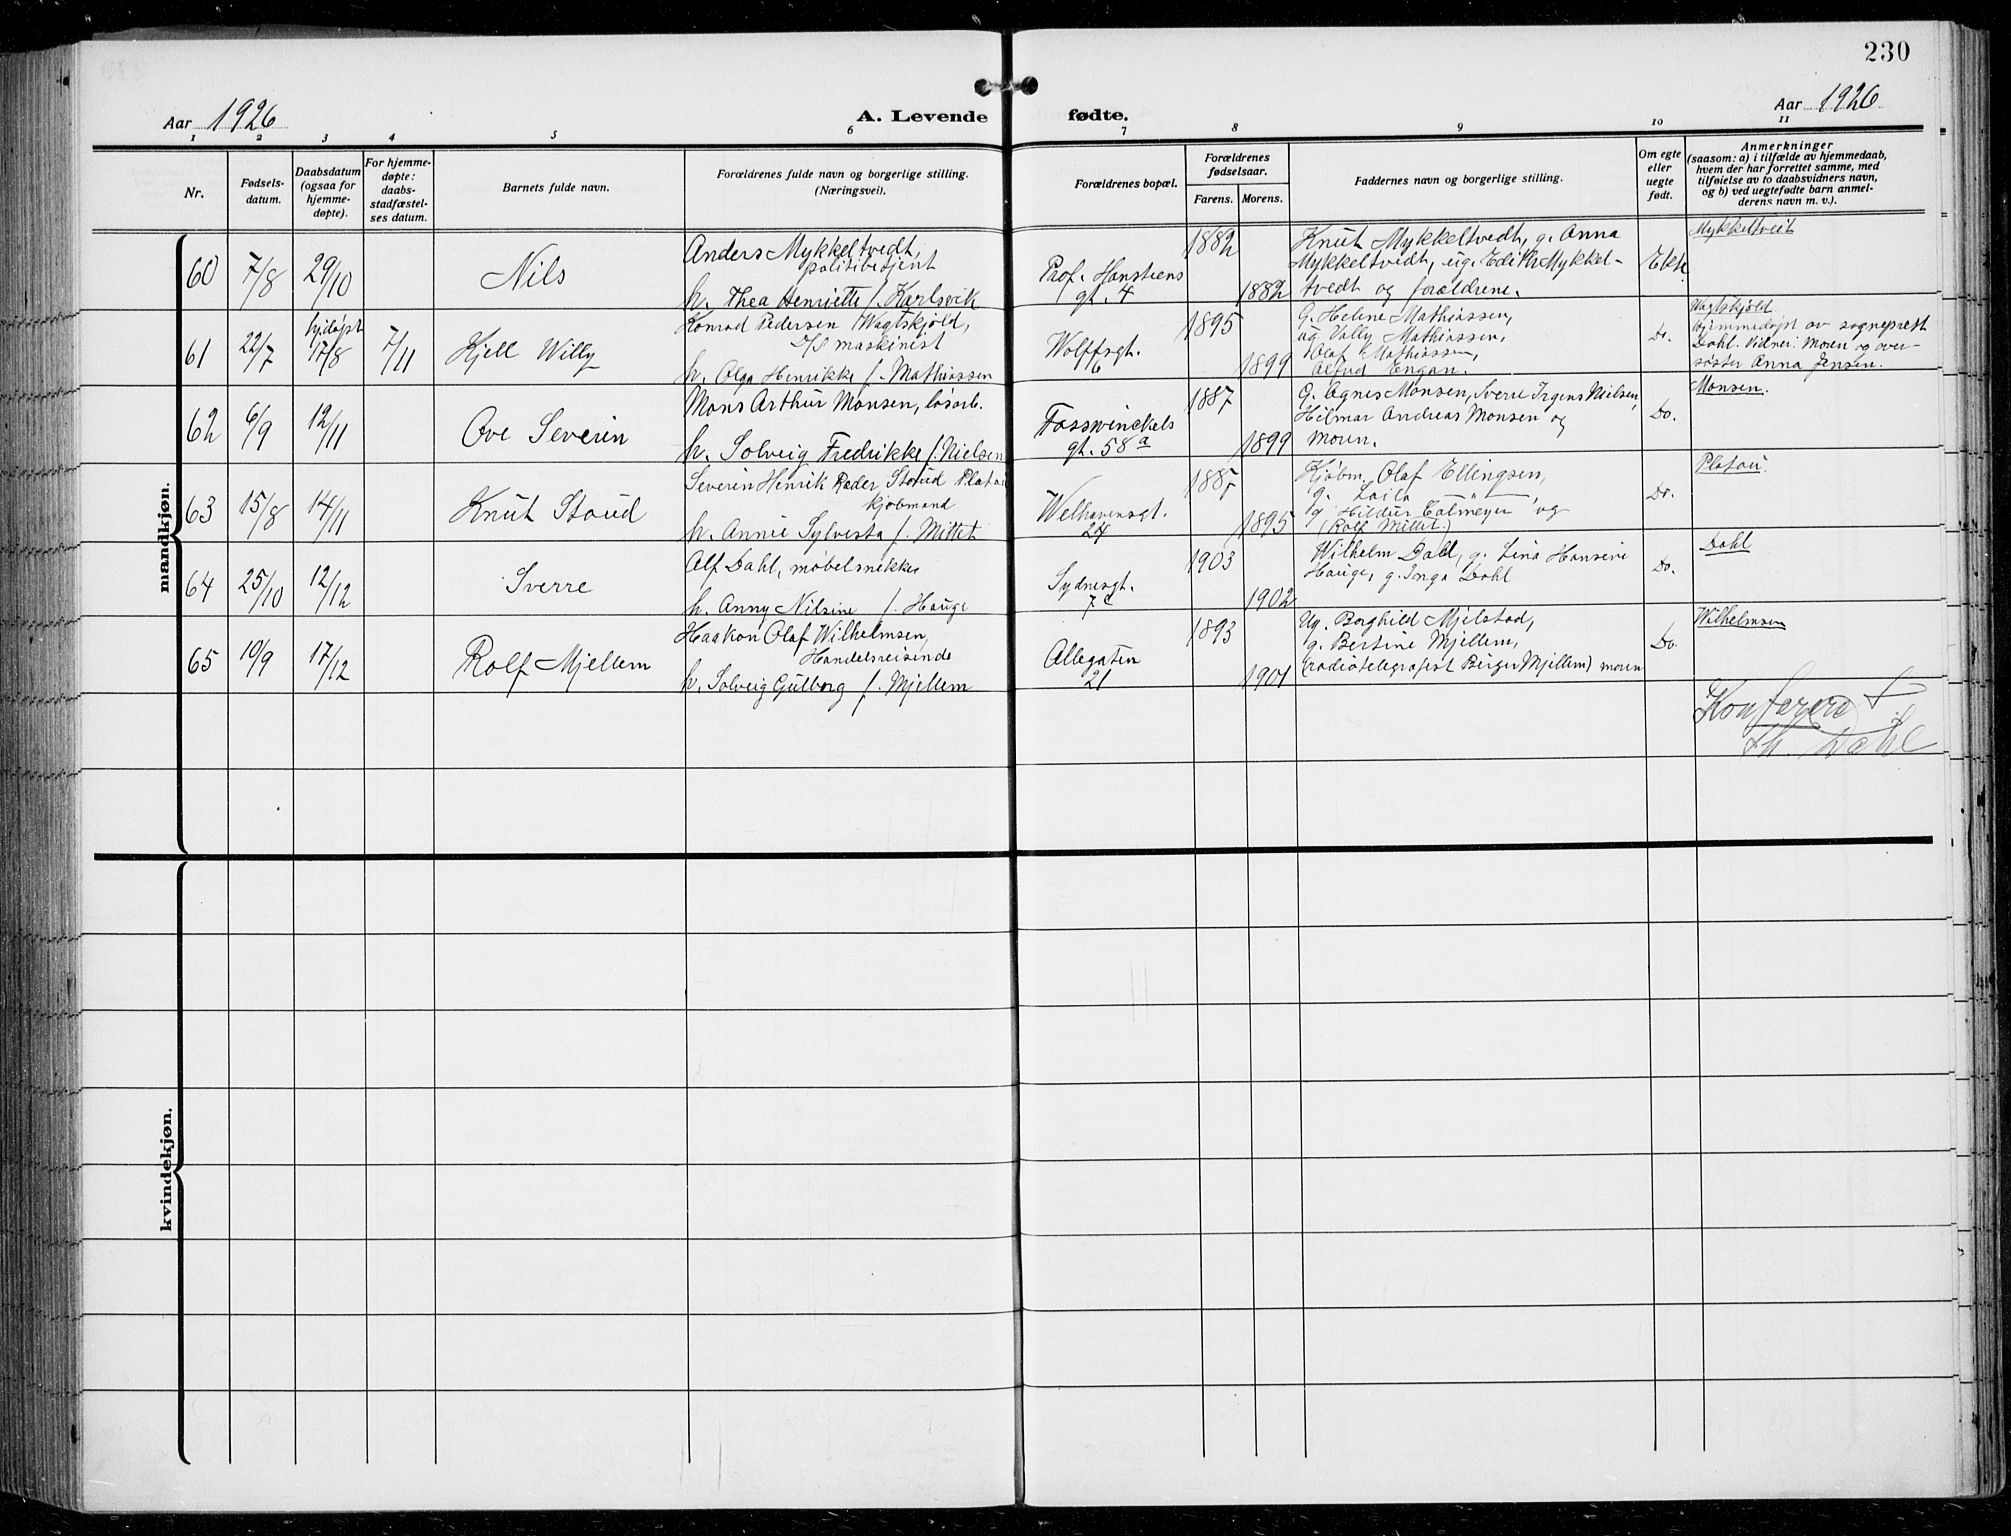 230
Aar 1926
A. Levende fødte.
Aar 1926
1 2 3 4 5 6 7 8 9 10 11
Nr.
Fødsels-
datum.
Daabsdatum
(ogsaa for
hjemme-
døpte).
For hjemme-
døpte:
daabs-
stadfæstel-
ses datum.
Barnets fulde navn.
Forældrenes fulde navn og borgerlige stilling.
(Næringsvei).
Forældrenes bopæl.
Forældrenes
fødselsaar.
Farens. Morens.
Faddernes navn og borgerlig stilling.
Om egte
eller
uegte
født.
Anmerkninger
(saasom: a) i tilfælde av hjemmedaab,
hvem der har forrettet samme, med
tilføielse av to daabsvidners navn,
og b) ved uegtefødte barn anmel-
derens navn m. v.).
mandkjøn.
60 7/8 29/10 Nils
Anders Mykkeltvedt,
politibetjent
h. Thea Henriette f. Karlsvik
Prof. Hansteens
gt. 4
1882
1882
Knut Mykkeltvedt, g. Anna
Mykkeltvedt, ug. Edith Mykkel-
tvedt og forældrene.
Ekte
Mykkeltveit
61 22/7 hjdøpt 17/8 7/11 Kjell Willy
Konrad Pedersen Wagtskjöld,
D/S maskinist
h. Olga Henrikke f. Mathiassen
Wolffsgt.
6
1895
1899
G. Helene Mathiassen,
ug. Vally Mathiassen,
Olaf Mathiassen,
Alfred Engan.
Do.
Wagtskjöld
Hjemmedøpt av sogneprest
Dahl. Vidner: Moren og over-
søster Anna Jensen.
62 6/9 12/11 Ove Severin
Mons Arthur Monsen, løsarb.
h. Solveig Fredrikke f. Nielsen
Fosswinckels
gt. 58 a
1887
1899
G. Agnes Monsen, Sverre Irgens Nielsen,
Hilmar Andreas Monsen og
moren.
Do.
Monsen.
63 15/8 14/11 Knut Stoud
Severin Henrik Ræder Stoud Platou
kjøbmand
h. Annie Sylvesta f. Mittet
Welhavensgt.
24
1885
1895
Kjøbm. Olaf Ellingsen,
g. Laila — " —
g. Hildur Colmeyer og
(Rolf Mittet.)
Do.
Platou.
64 25/10 12/12 Sverre
Alf Dahl, møbelsnikker
h. Anny Nilsine f. Hauge
Sydnesgt.
7 c
1903
1902
Wilhelm Dahl, g. Lina Hansine
Hauge, g. Inga Dahl
Do.
Dahl
65 10/9 17/12 Rolf Mjellem
Haakon Olaf Wilhelmsen,
Handelsreisende
h. Solveig Gulborg f. Mjellem
Allegaten
21
1893
1901
Ug. Borghild Mjelstad,
g. Bertine Mjellem,
(radiotelegrafist Birger Mjellem) moren
Do.
Wilhelmsen
Konfarert
Th. Dahl
kvindekjøn.